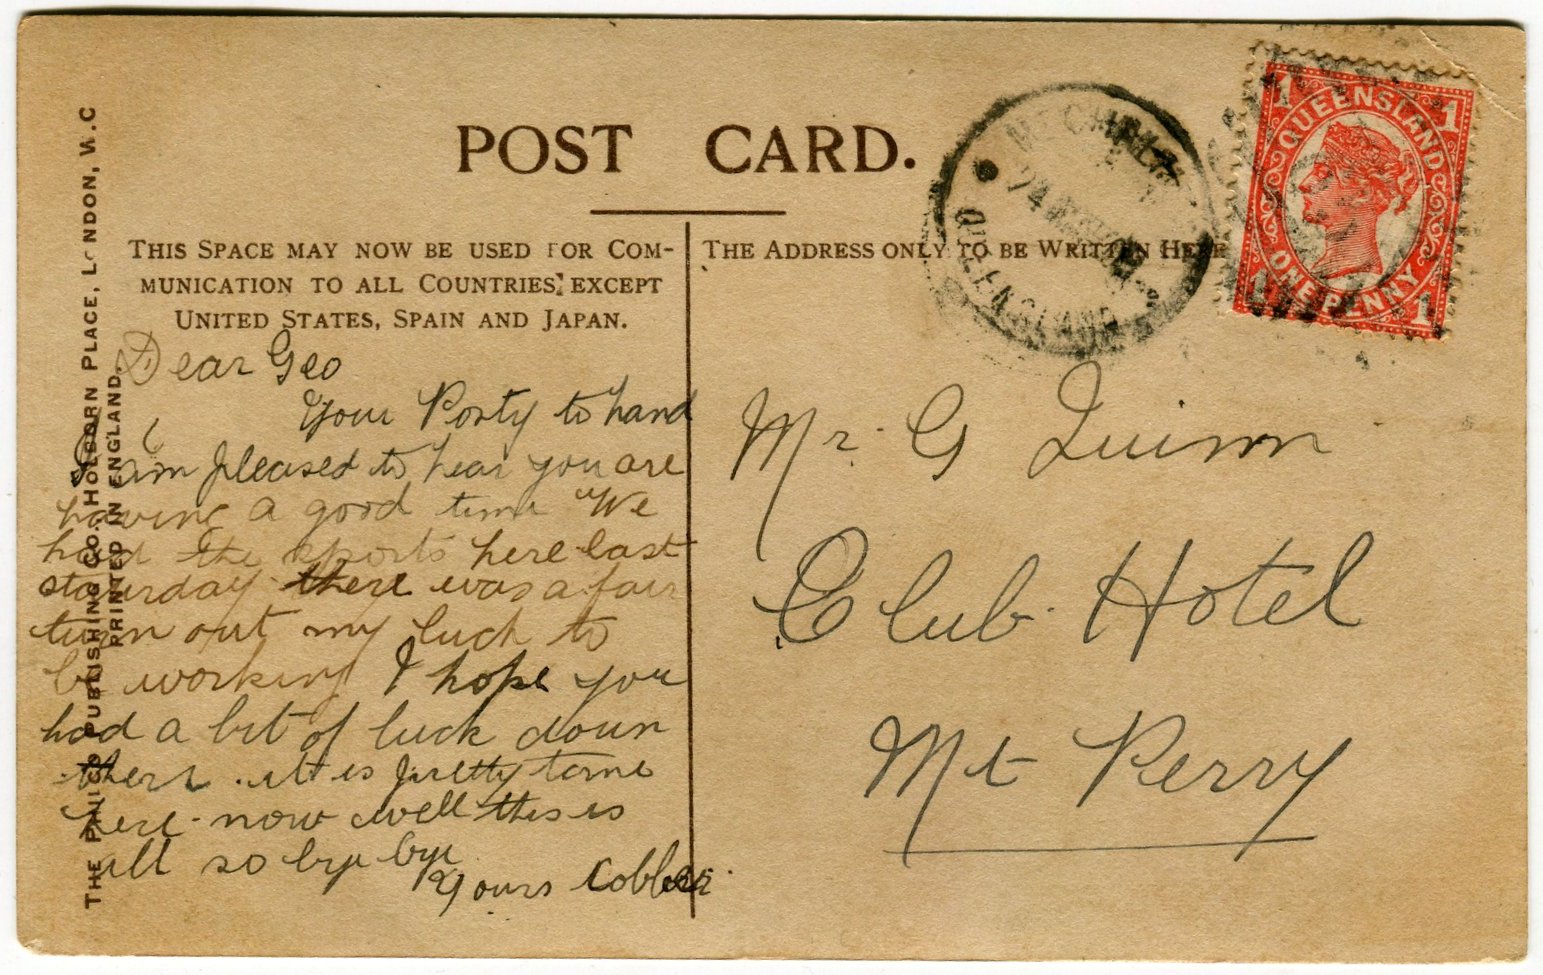 POST CARD.
THIS SPACE MAY NOW BE USED FOR COM-
MUNICATION TO ALL COUNTRIES, EXCEPT
UNITED STATES, SPAIN AND JAPAN.
THE ADDRESS ONLY TO BE WRITTEN HERE
Dear Geo
Your Posty to hand
I am pleased to hear you are
having a good time We
had the sports here last
saturday there was a fair
turn out my luck to
be working I hope you
had a bit of luck down
there. it is pretty tame
here now well this is
all so bye bye
Yours Cobber.
Mr. G Quinn
Club Hotel
Mt Perry
QUEENSLAND
ONE PENNY
1
1
1
1
24
QUEENSLAND
THE PHILCO PUBLISHING CO., HOLBORN PLACE, LONDON, W.C
PRINTED IN ENGLAND.